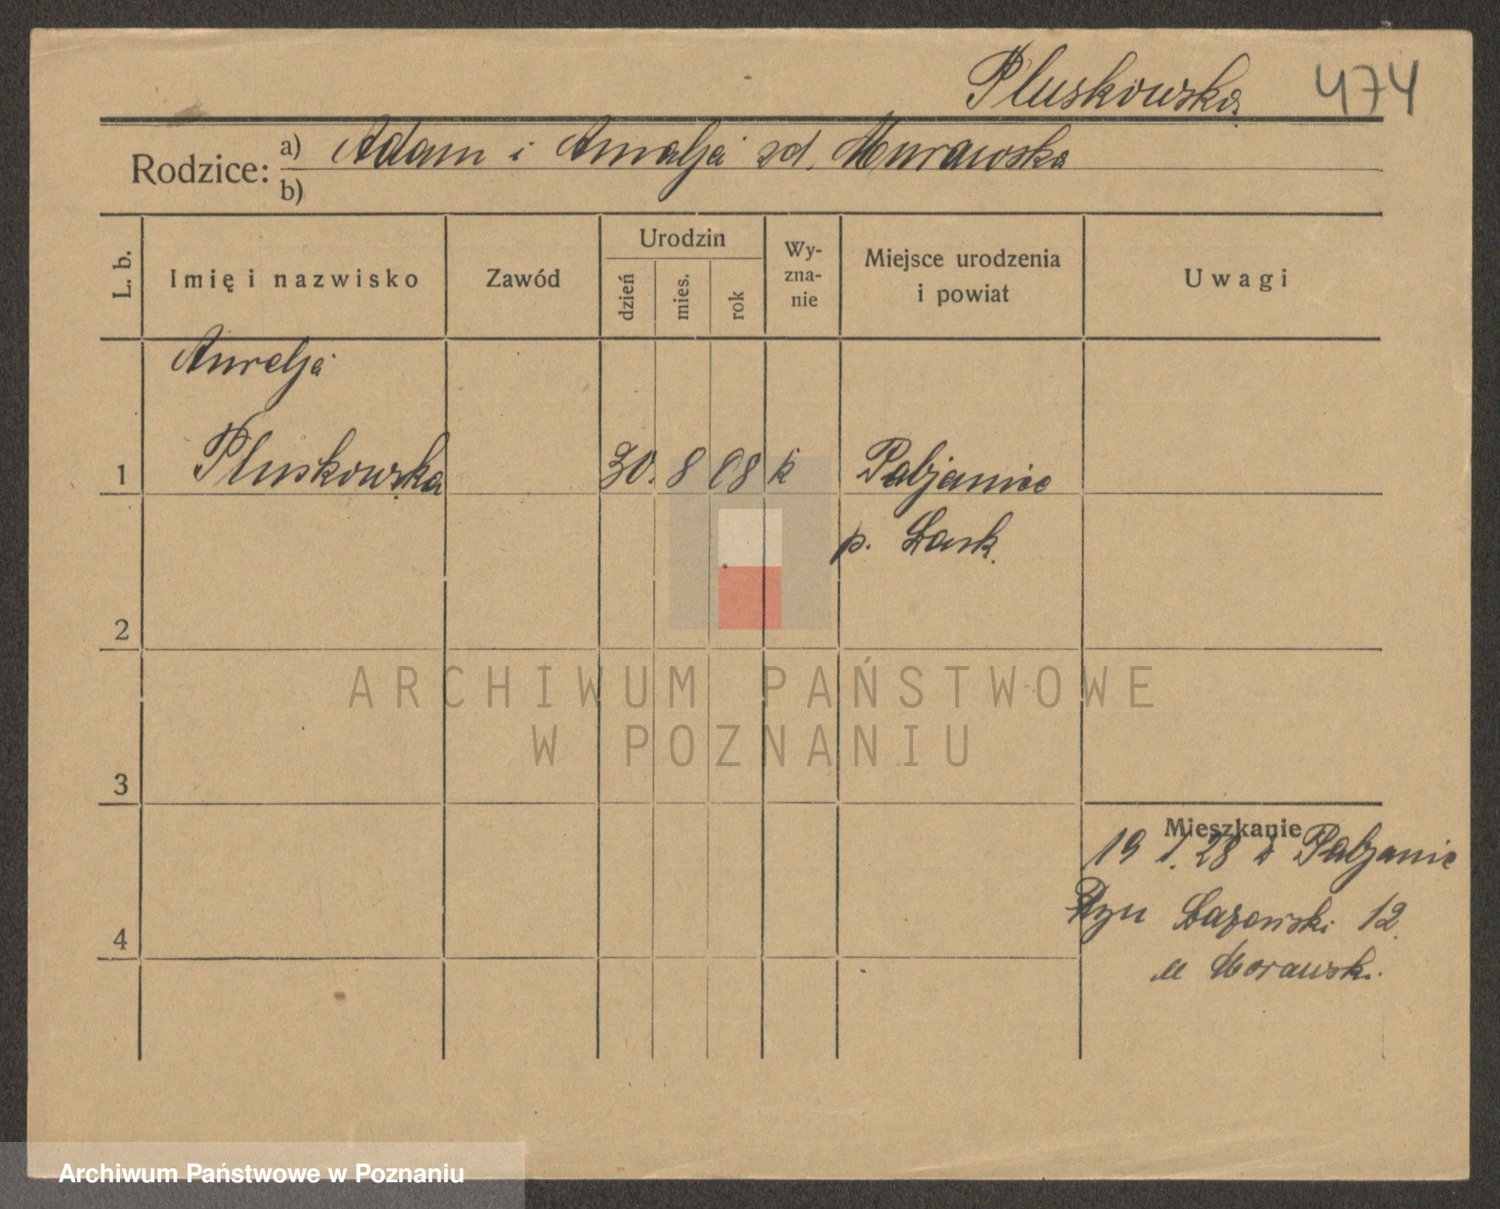 Pluskowska 474
Rodzice: a) Adam i Amalja zd. Murawska
b)
L. b. Imię i nazwisko Zawód Urodzin dzień mies. rok Wyznanie Miejsce urodzenia i powiat Uwagi
Aurelja
1 Pluskowska 30. 8 08 k Pabjanice
p. Łask.
2
ARCHIWUM PAŃSTWOWE
W POZNANIU
3
Mieszkanie
19 1. 28 z Pabjanic
Ryn Łazarski 12.
u Morawsk.
4
Archiwum Państwowe w Poznaniu